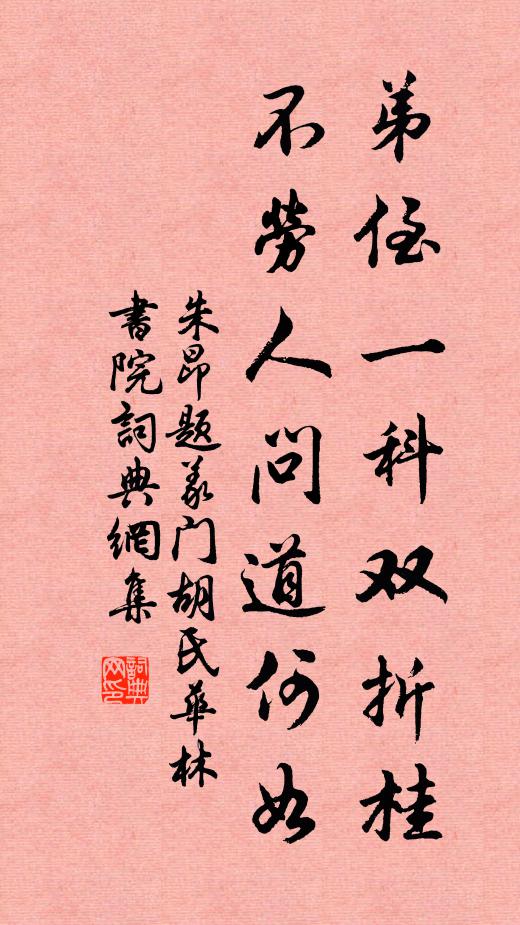 弟侄一科双折桂
不勞人问道何如
朱昂题義门胡氏華林
書院詞典網集
詞典
网印